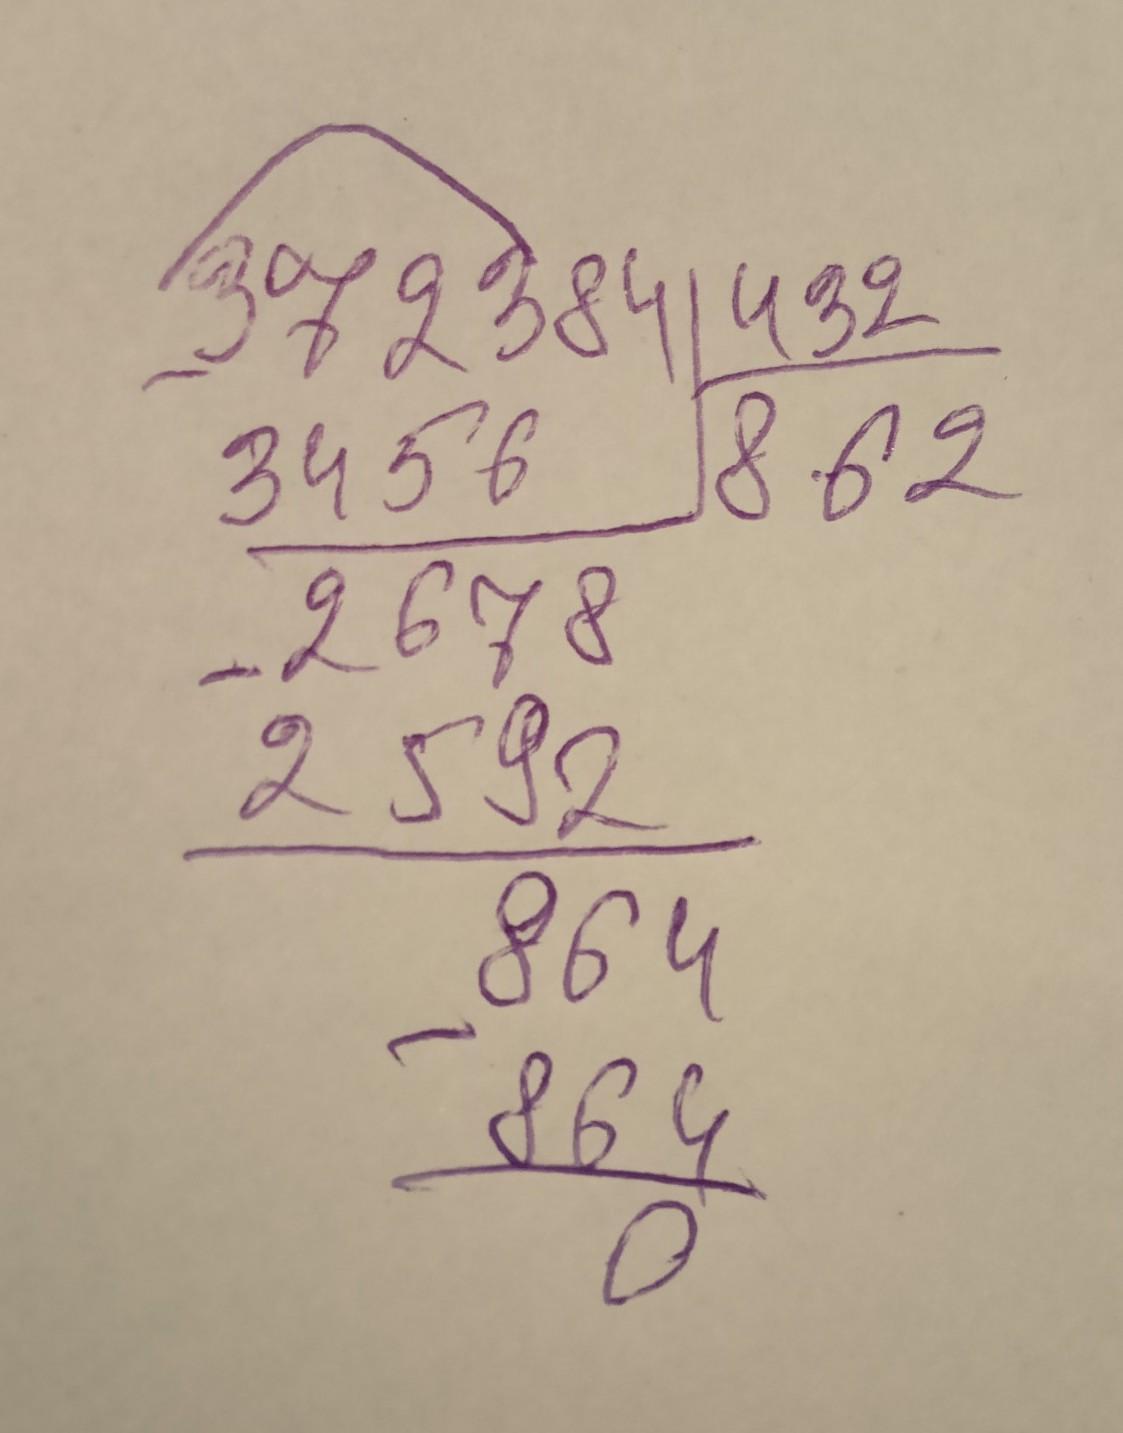 372384 432
- 3456 862
- 2678
2592
864
- 864
0